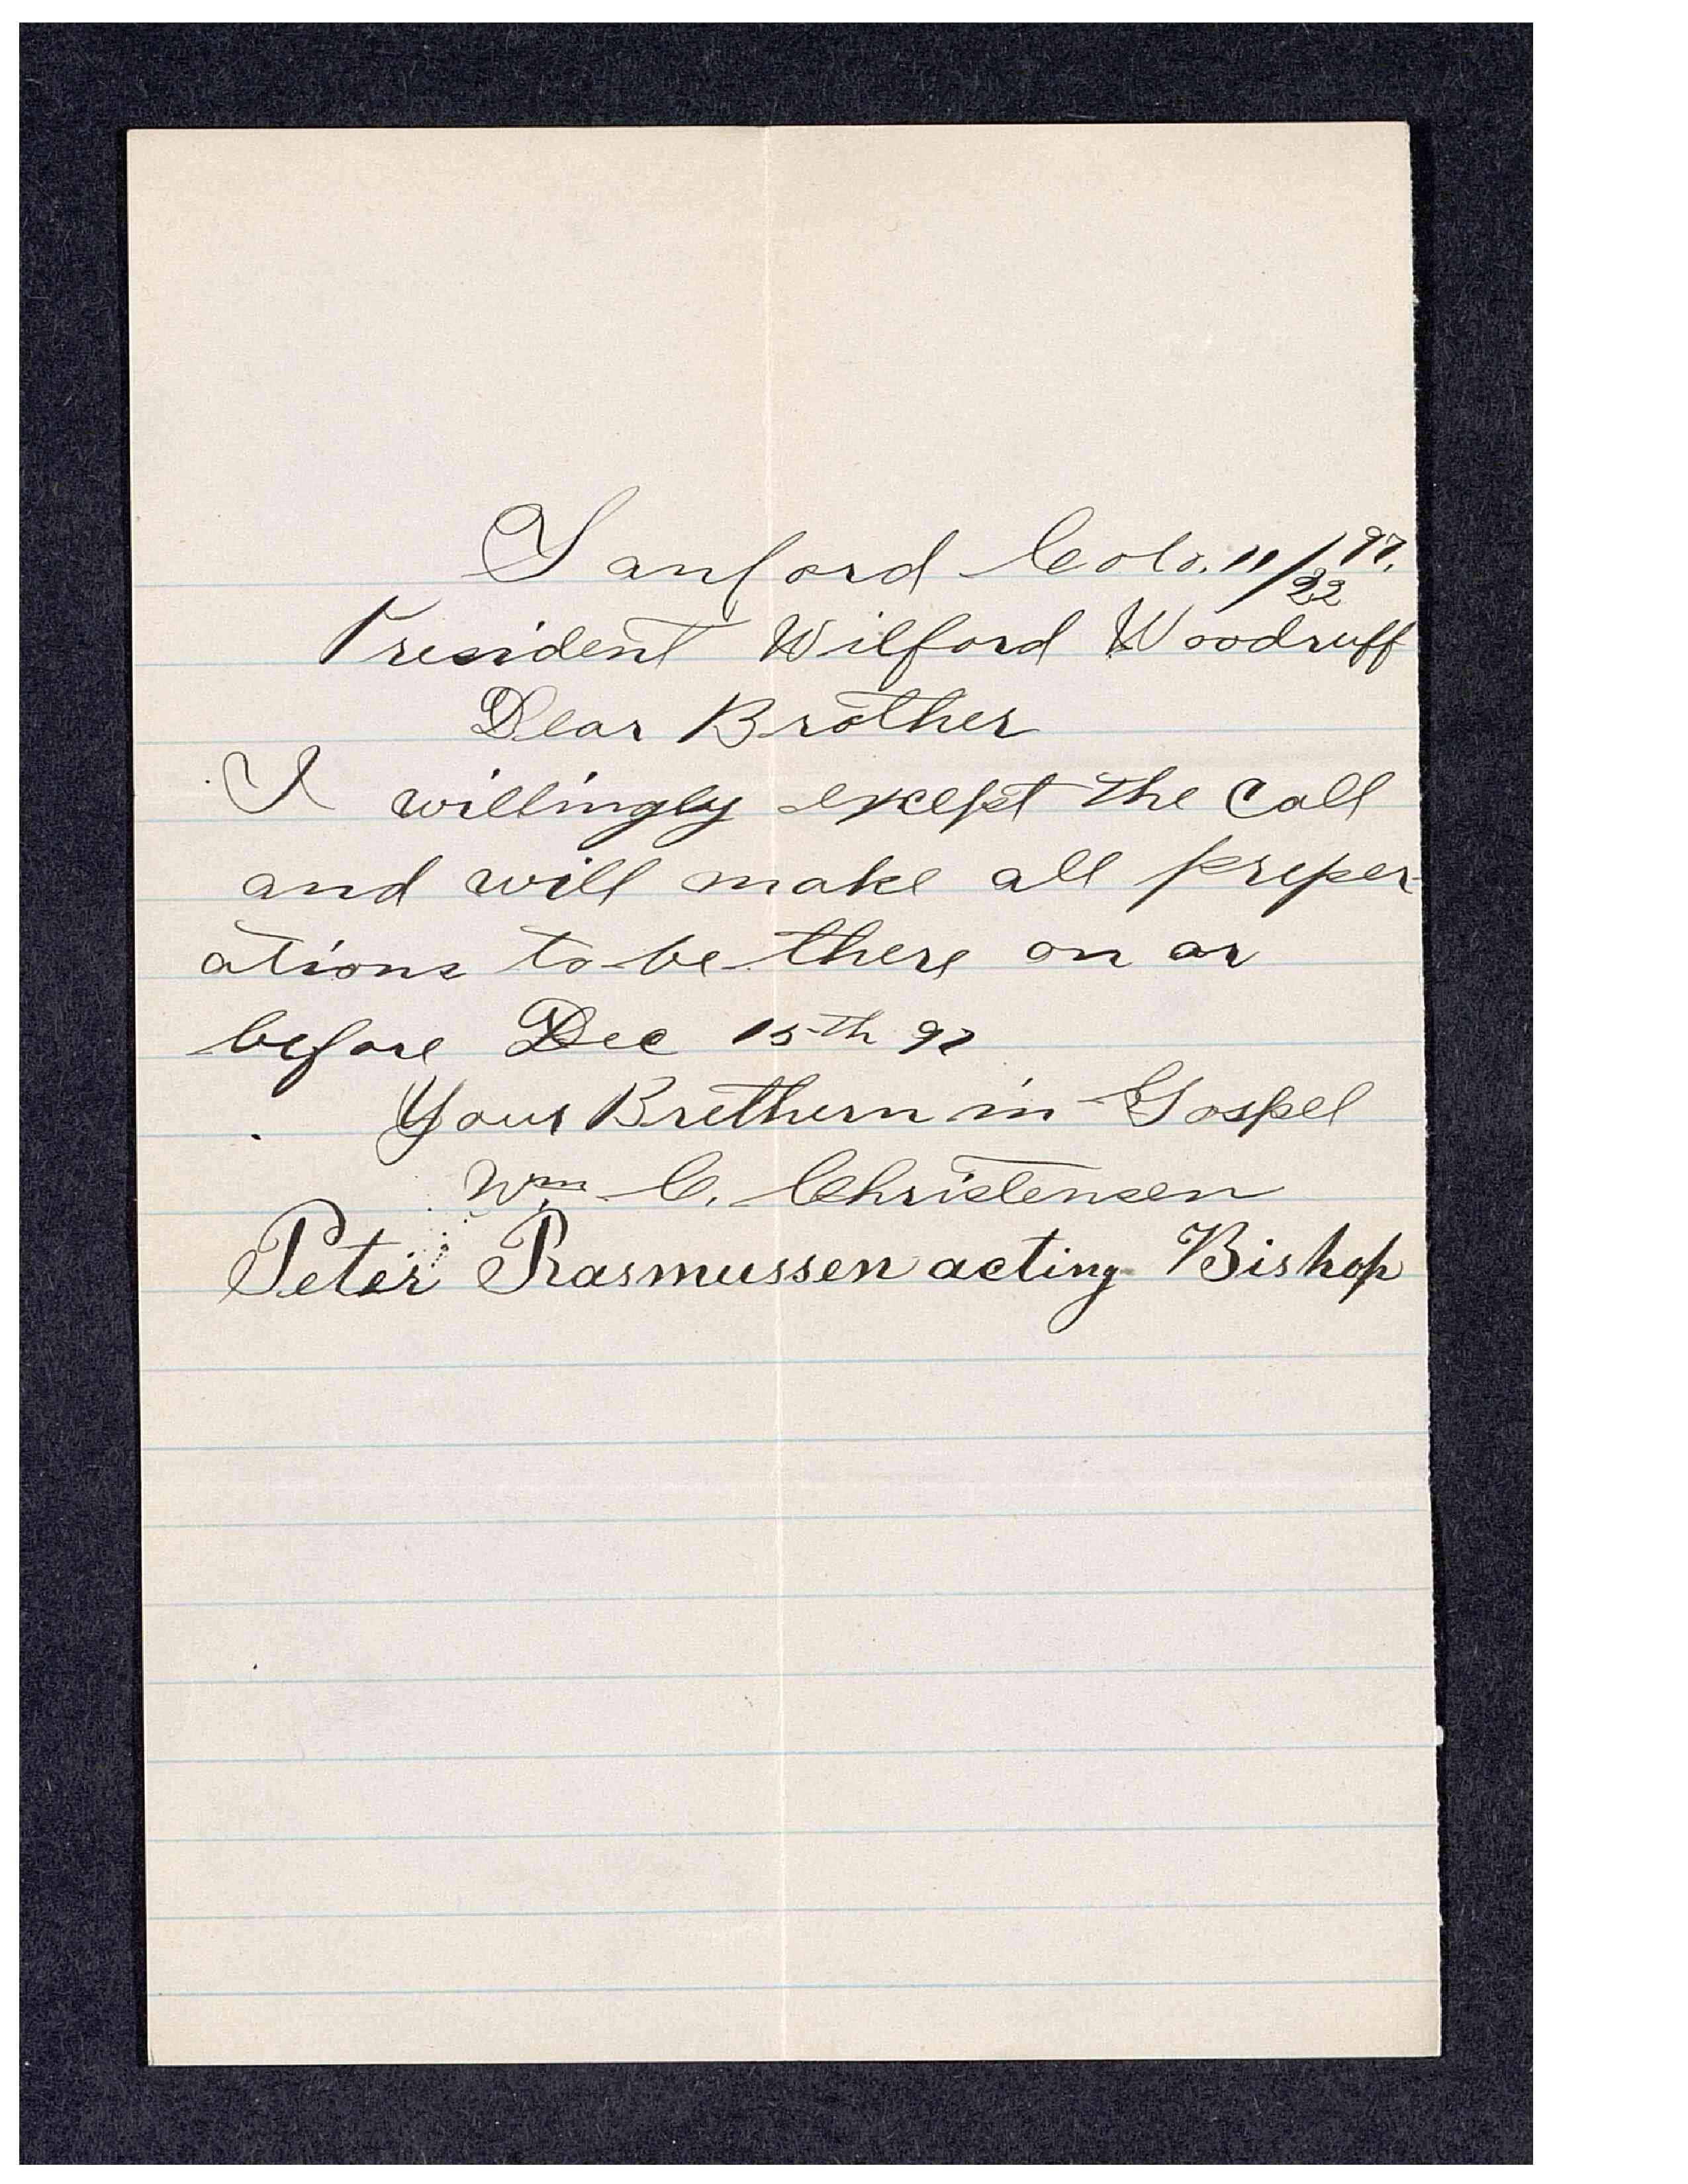 Sanford Colo. 11/22 97.
President Wilford Woodruff
Dear Brother
I willingly except the call
and will make all preper-
ations to be there on or
before Dec 15th 97
Your Brethern in Gospel
Wm C. Christensen
Peter Rasmussen acting Bishop